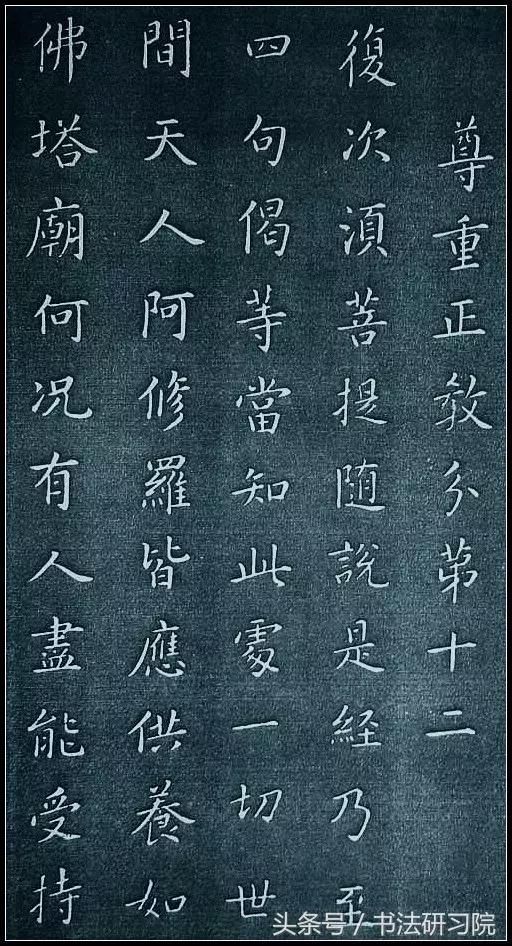 尊重正教分第十二
復次須菩提随說是経乃至
四句偈等當知此處一切世
間天人阿修羅皆應供養如
佛塔廟何况有人盡能受持
头条号/书法研习院